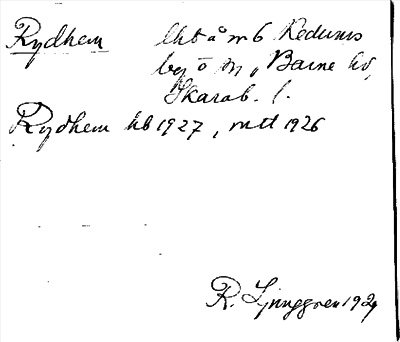 Rydhem lht å m 6 Kedums
by ö m, Barne hd,
Skarab. l.
Rydhem hb 1927, mtl 1926
R. Ljunggren 1929